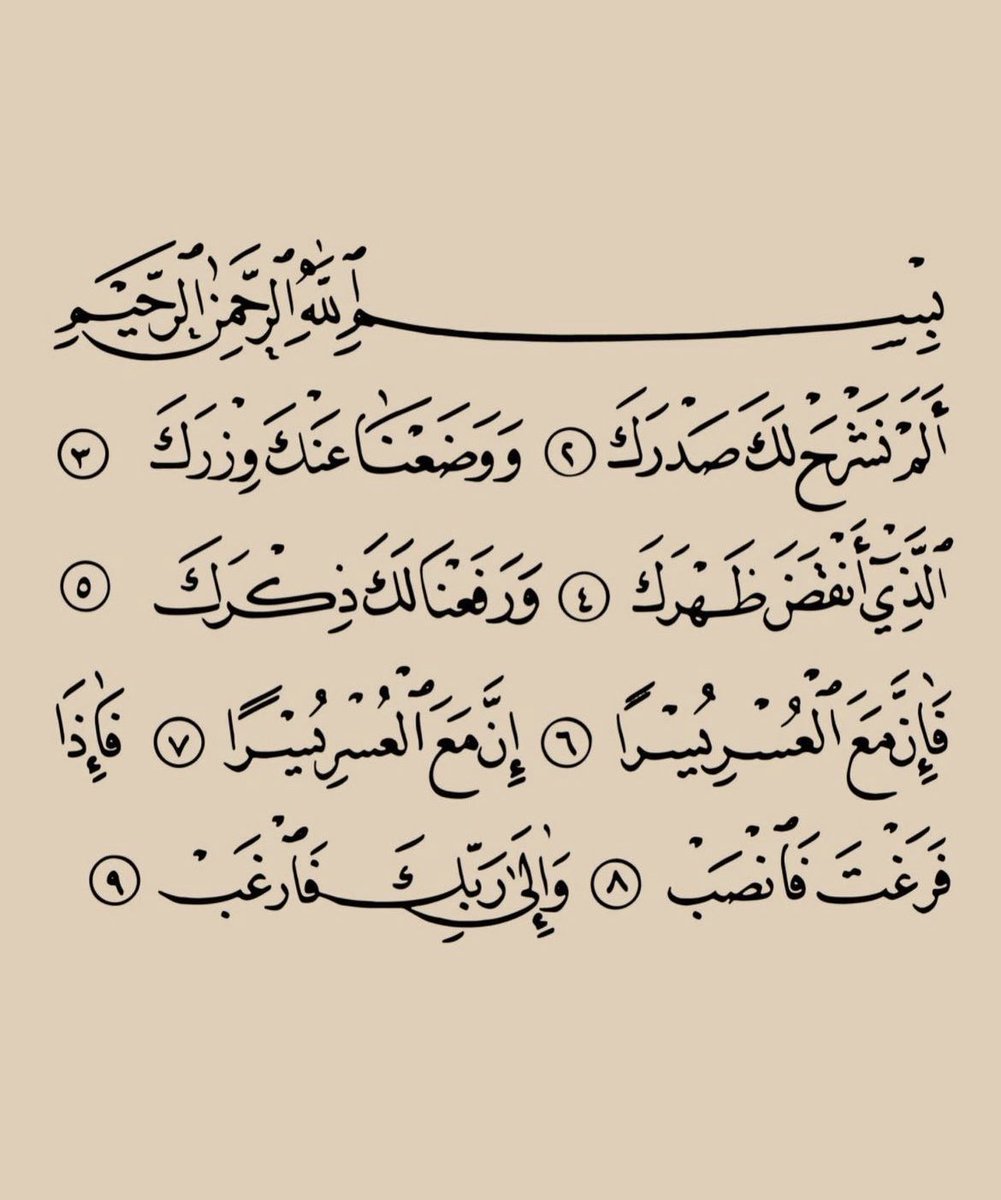 بِسْمِ ٱللَّهِ ٱلرَّحْمَٰنِ ٱلرَّحِيمِ
أَلَمْ نَشْرَحْ لَكَ صَدْرَكَ ٢ وَوَضَعْنَا عَنْكَ وِزْرَكَ ٣
ٱلَّذِيٓ أَنْقَضَ ظَهْرَكَ ٤ وَرَفَعْنَا لَكَ ذِكْرَكَ ٥
فَإِنَّ مَعَ ٱلْعُسْرِ يُسْرًا ٦ إِنَّ مَعَ ٱلْعُسْرِ يُسْرًا ٧ فَإِذَا
فَرَغْتَ فَٱنْصَبْ ٨ وَإِلَىٰ رَبِّكَ فَٱرْغَبْ ٩